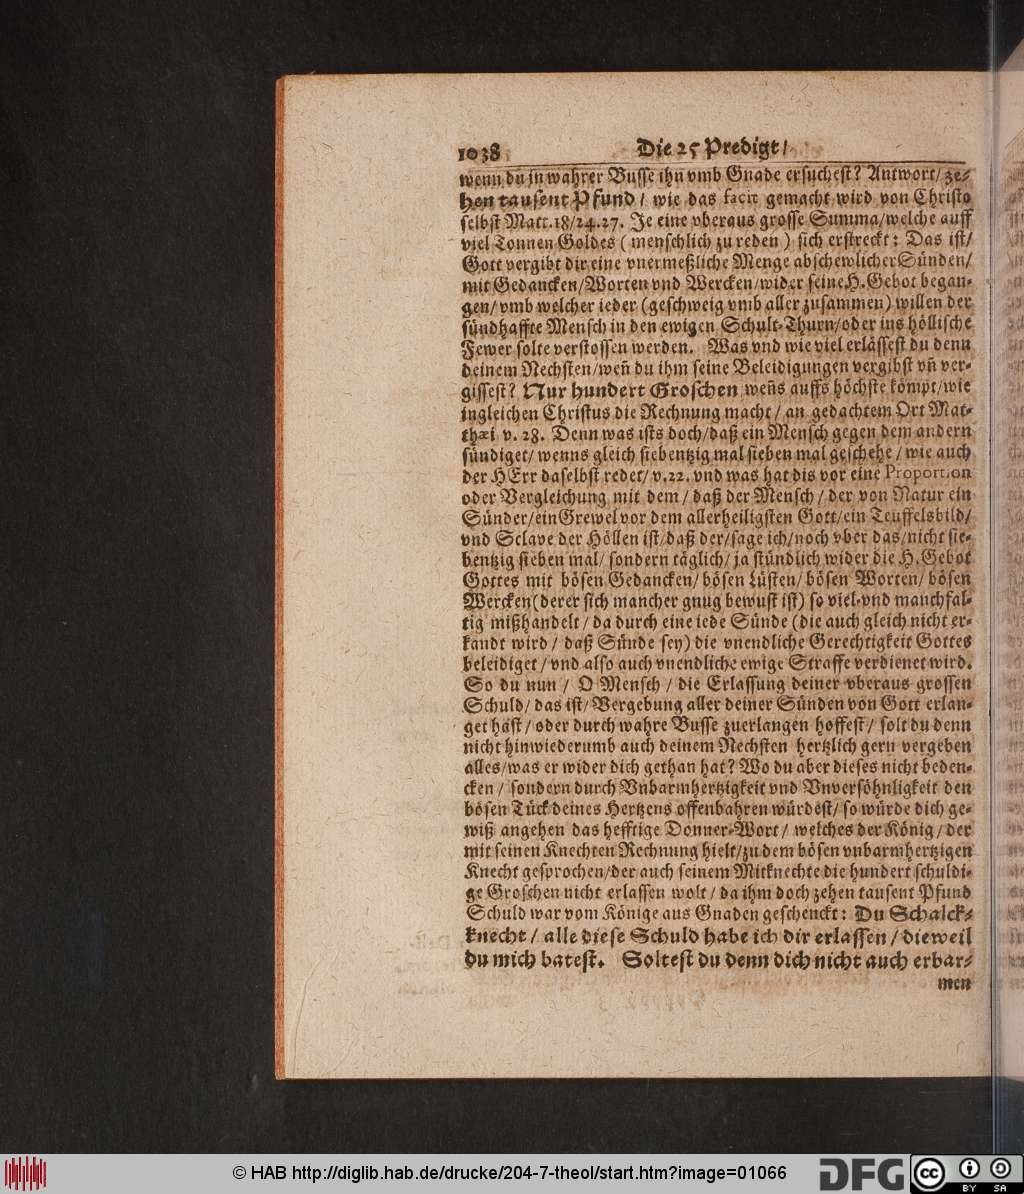 1038 Die 25 Predigt/
wenn du in wahrer Busse ihn vmb Gnade ersuchest? Antwort/ ze-
hen tausent Pfund/ wie das facit gemacht wird von Christo
selbst Matt.18/24.27. Je eine vberaus grosse Summa/welche auff
viel Tonnen Goldes (menschlich zu reden) sich erstreckt: Das ist/
Gott vergibt dir eine vnermeßliche Menge abschewlicher Sünden/
mit Gedancken/Worten vnd Wercken/wider seine H. Gebot began-
gen/ vmb welcher ieder (geschweig vmb aller zusammen) willen der
sündhaffte Mensch in den ewigen Schult-Thurn/oder ins höllische
Fewer solte verstossen werden. Was vnd wie viel erlässest du denn
deinem Nechsten/weñ du ihm seine Beleidigungen vergibst vñ ver-
gissest? Nur hundert Groschen weñs auffs höchste kömpt/wie
ingleichen Christus die Rechnung macht/ an gedachtem Ort Mat-
thæi v. 28. Denn was ists doch/daß ein Mensch gegen dem andern
sündiget/ wenns gleich siebentzig mal sieben mal geschehe/ wie auch
der HErr daselbst redet/ v.22. vnd was hat dis vor eine Proportion
oder Vergleichung mit dem/ daß der Mensch/ der von Natur ein
Sünder/ein Grewel vor dem allerheiligsten Gott/ein Teuffelsbild/
vnd Sclave der Höllen ist/daß der/sage ich/noch vber das/nicht sie-
bentzig sieben mal/ sondern täglich/ ja stündlich wider die H. Gebot
Gottes mit bösen Gedancken/ bösen Lüsten/ bösen Worten/ bösen
Wercken(derer sich mancher gnug bewust ist) so viel-vnd manchfal-
tig mißhandelt/ da durch eine iede Sünde (die auch gleich nicht er-
kandt wird/ daß Sünde sey) die vnendliche Gerechtigkeit Gottes
beleidiget/ vnd also auch vnendliche ewige Straffe verdienet wird.
So du nun/ O Mensch/ die Erlassung deiner vberaus grossen
Schuld/ das ist/ Vergebung aller deiner Sünden von Gott erlan-
get hast/ oder durch wahre Busse zuerlangen hoffest/ solt du denn
nicht hinwiederumb auch deinem Nechsten hertzlich gern vergeben
alles/was er wider dich gethan hat? Wo du aber dieses nicht beden-
cken/ sondern durch Vnbarmhertzigkeit vnd Vnversöhnligkeit den
bösen Tück deines Hertzens offenbahren würdest/ so würde dich ge-
wiß angehen das hefftige Donner-Wort/ welches der König/ der
mit seinen Knechten Rechnung hielt/zu dem bösen vnbarmhertzigen
Knecht gesprochen/der auch seinem Mitknechte die hundert schuldi-
ge Groschen nicht erlassen wolt/ da ihm doch zehen tausent Pfund
Schuld war vom Könige aus Gnaden geschenckt: Du Schalck-
knecht/ alle diese Schuld habe ich dir erlassen/ dieweil
du mich batest. Soltest du denn dich nicht auch erbar-
men
© HAB http://diglib.hab.de/drucke/204-7-theol/start.htm?image=01066
DFG
cc BY SA